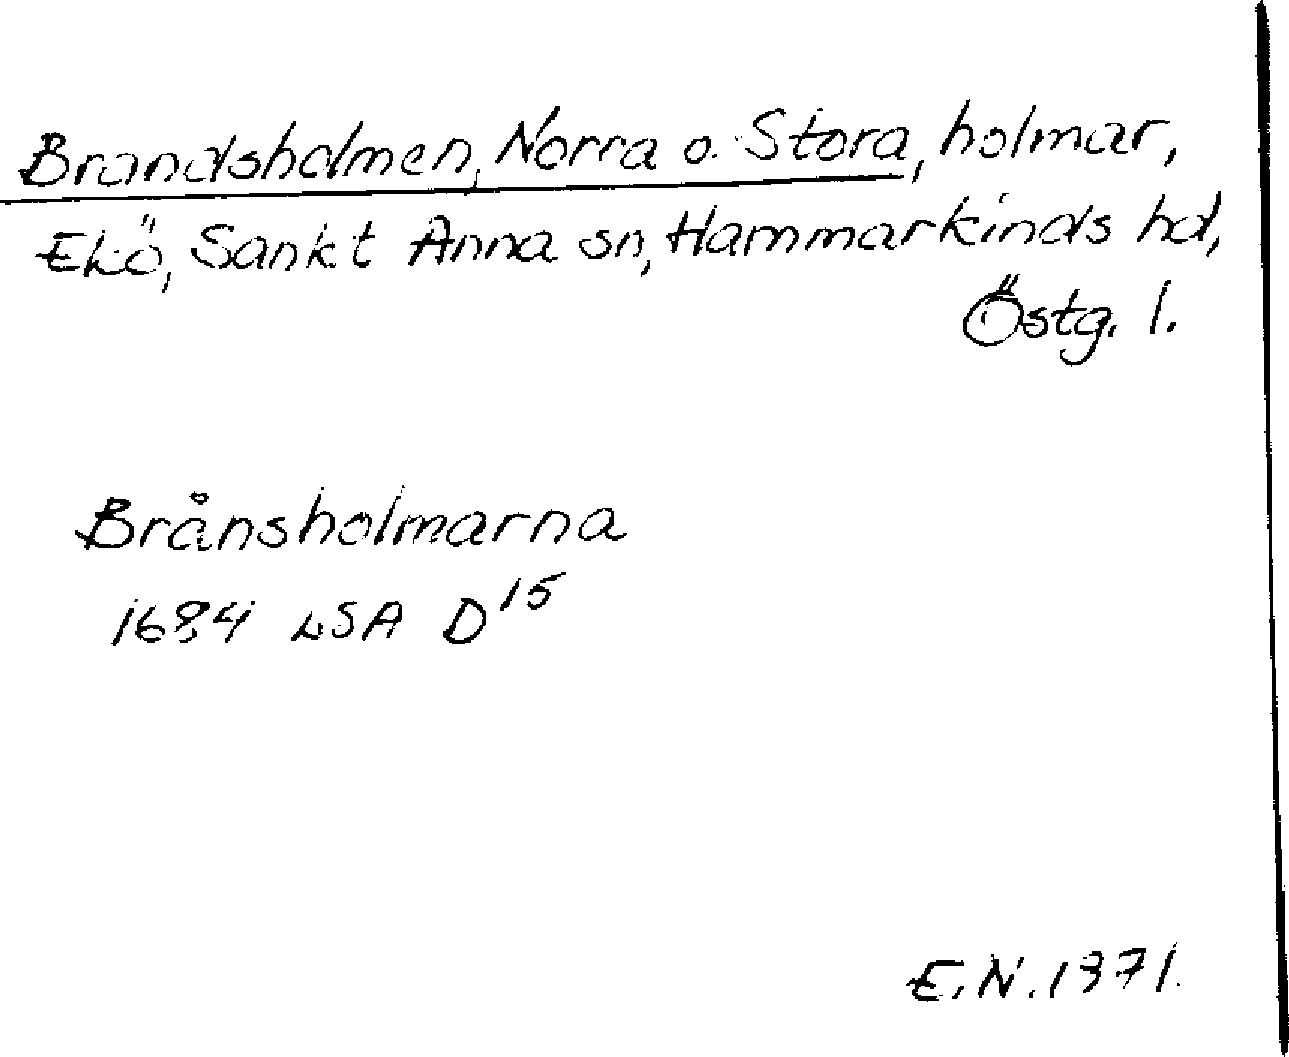 Brandsholmen, Norra o. Stora, holmar,
Ekö, Sankt Anna sn, Hammarkinds hd,
Östg. l.
Brånsholmarna
1684 LSA D 15
E.N. 1971.